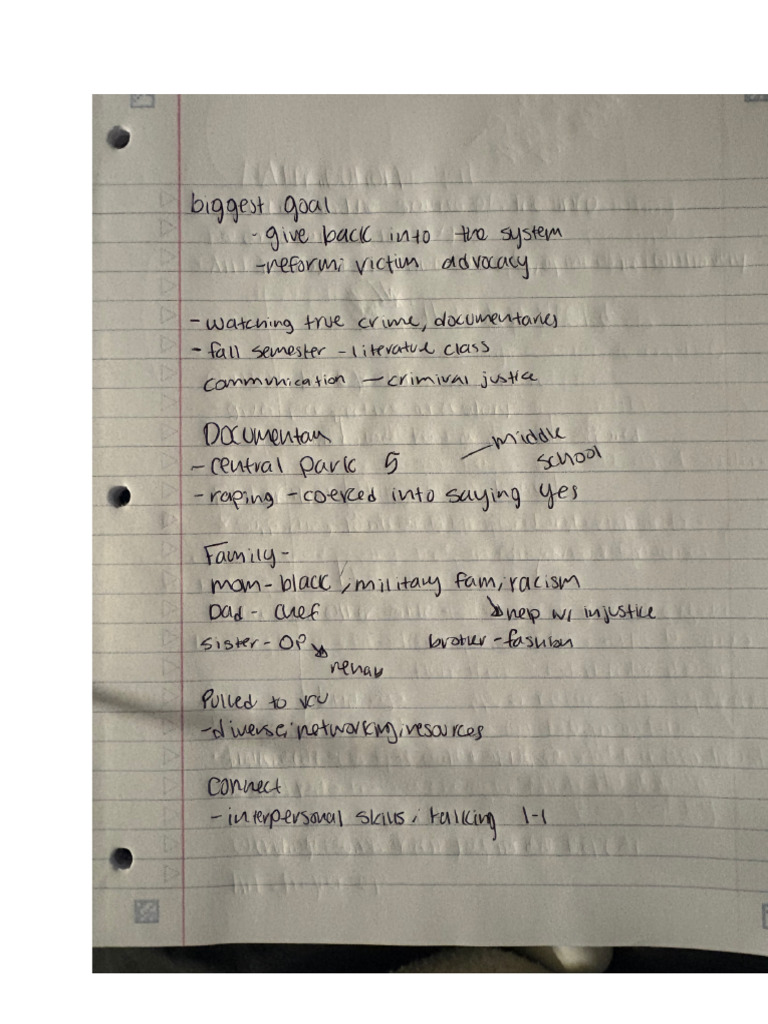 biggest goal
- give back into the system
- reform; victim advocacy
- watching true crime, documentaries
- fall semester - literature class
communication - criminal justice
Documentary
- central park 5 - middle school
- raping - coerced into saying yes
Family -
mom - black, military fam, racism
Dad - chef ↘ help w/ injustice
sister - OP ↘ brother - fashion
rehab
Pulled to VCU
- diverse, networking, resources
Connect
- interpersonal skills, talking 1-1